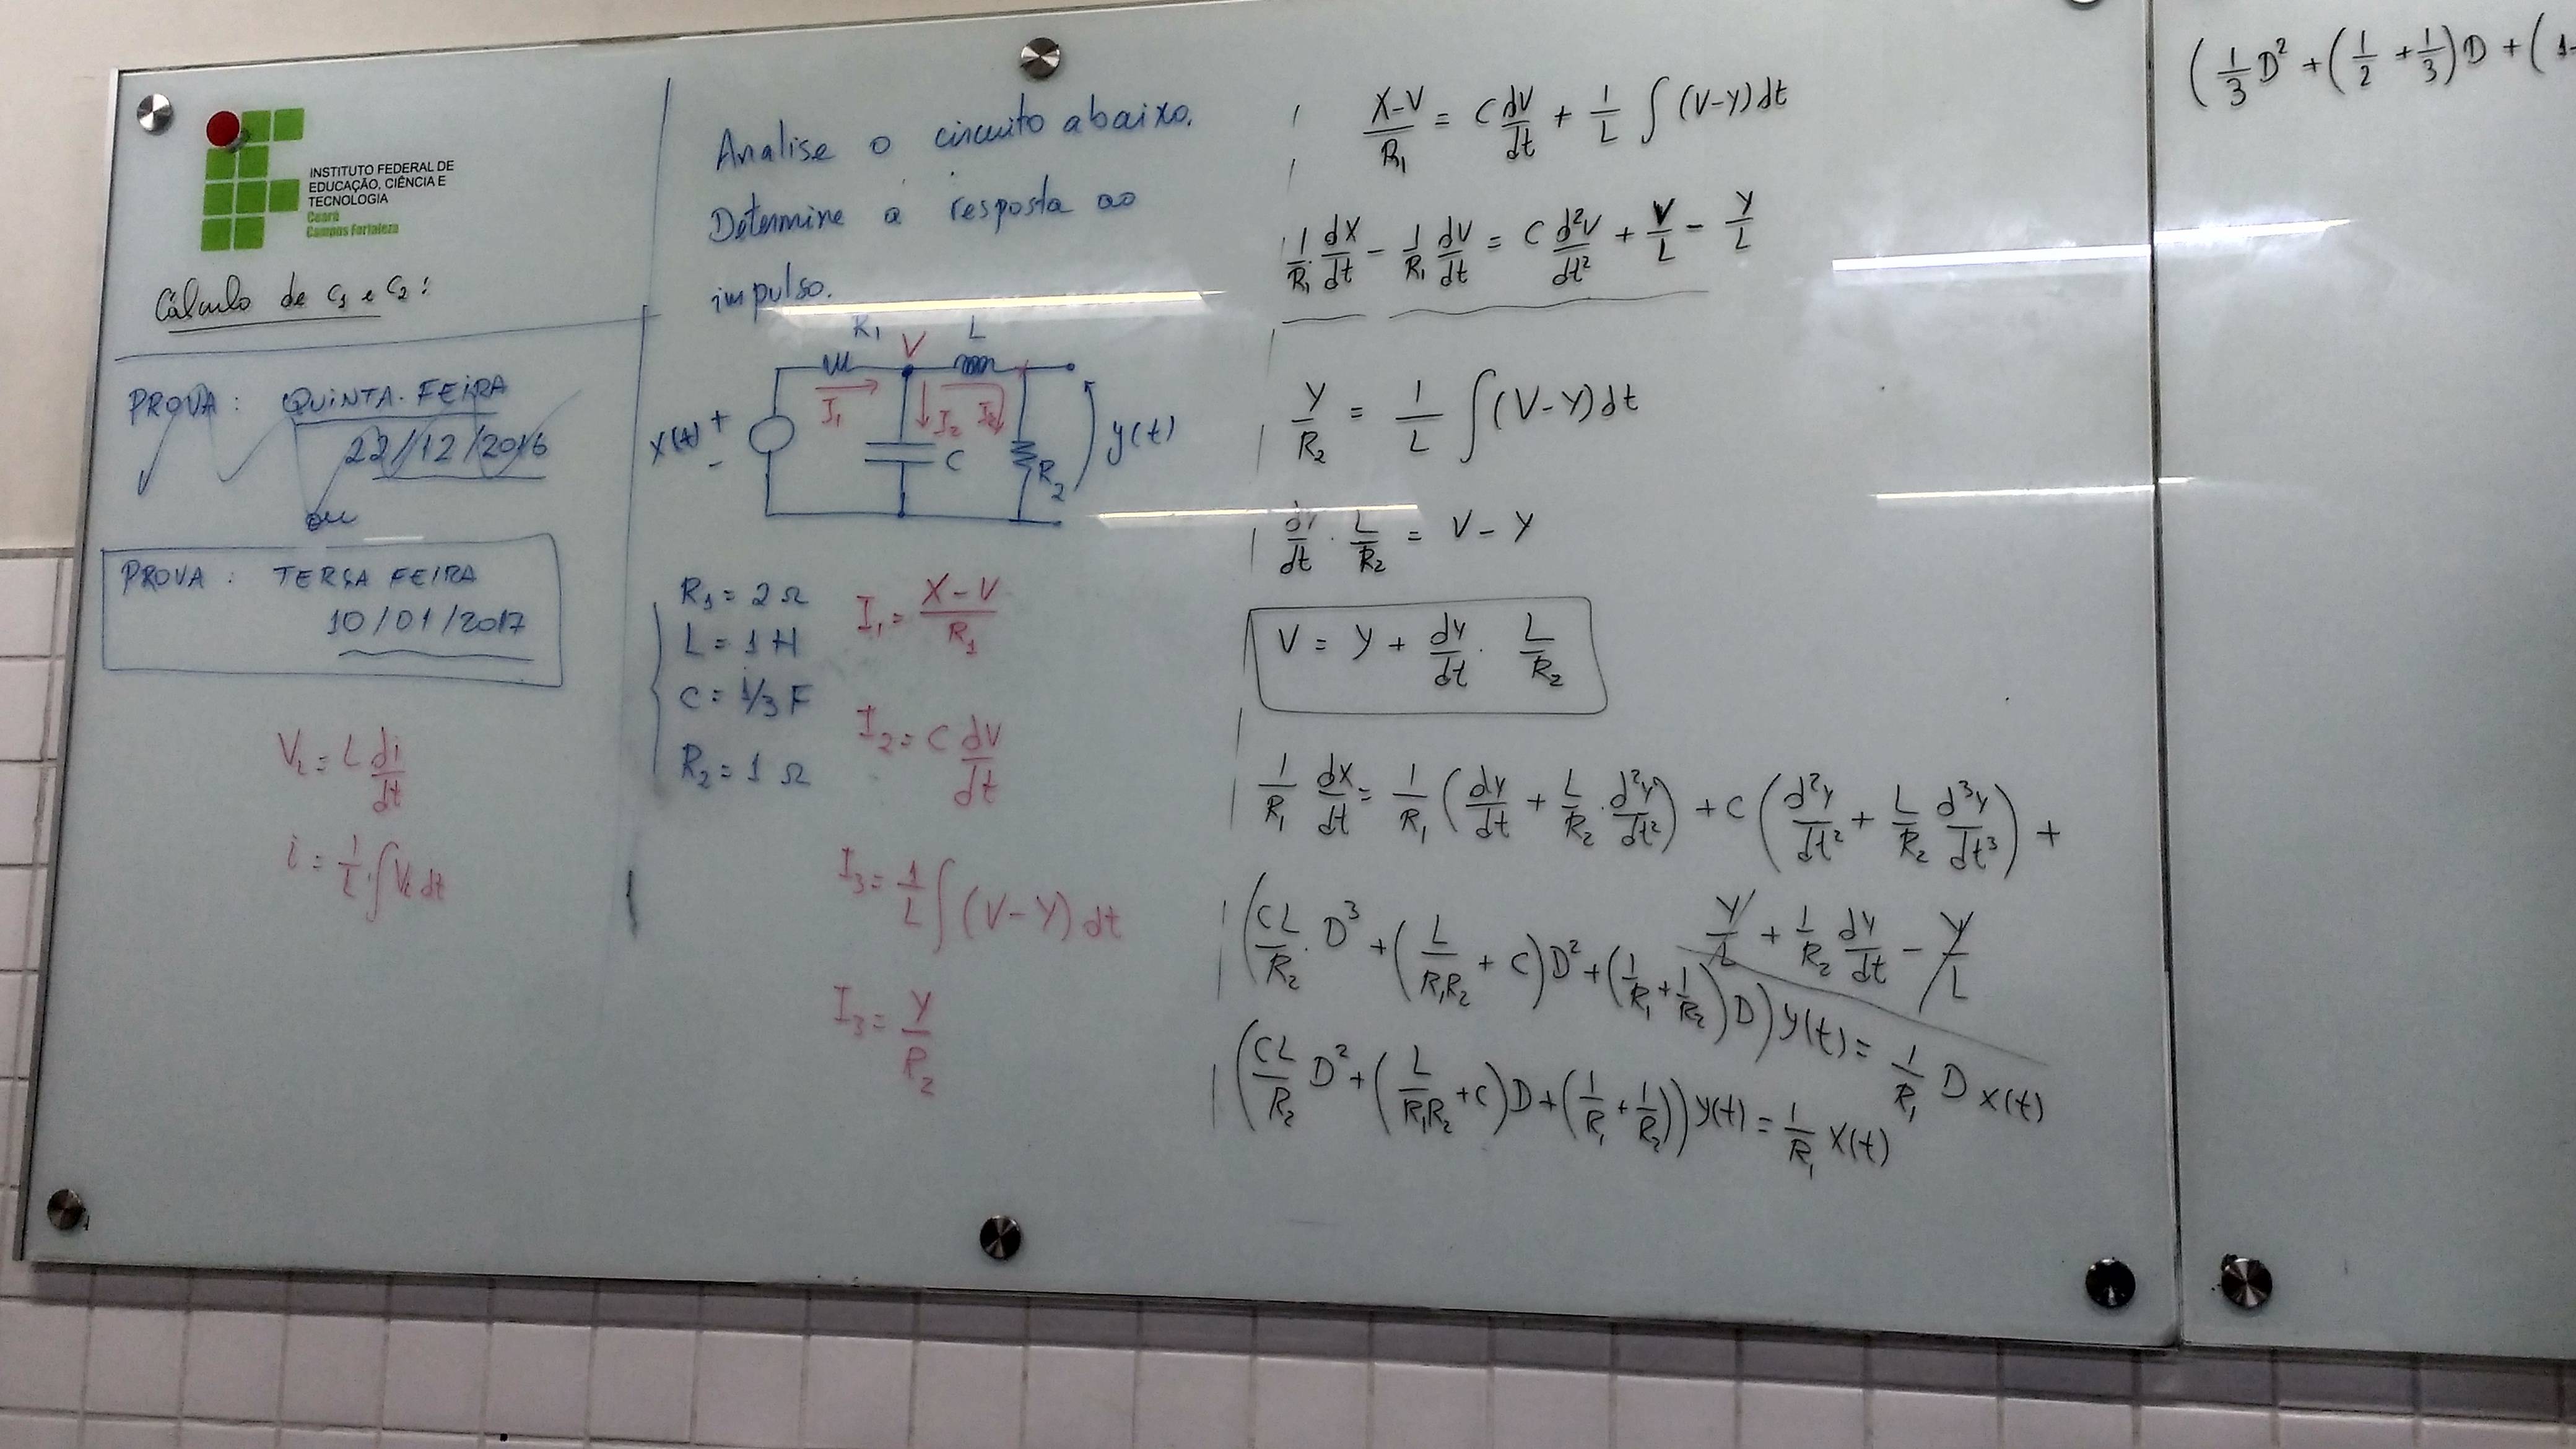 INSTITUTO FEDERAL DE
EDUCAÇÃO, CIÊNCIA E
TECNOLOGIA
Ceará
Campus Fortaleza
Cálculo de C₁ e C₂:
PROVA : QUINTA. FEIRA
22/12/2016
ou
PROVA : TERÇA FEIRA
10/01/2017
V_L = L di/dt
i = 1/L · ∫ V_L dt
Analise o circuito abaixo.
Determine a resposta ao
impulso.
R₁ V L
I₁ I₂ I₃
x(t) + - C R₂ y(t)
R₁ = 2 Ω
L = 1 H
C = 1/3 F
R₂ = 1 Ω
I₁ = (X-V)/R₁
I₂ = C dV/dt
I₃ = 1/L ∫ (V-Y) dt
I₃ = Y/R₂
(X-V)/R₁ = C dV/dt + 1/L ∫ (V-Y) dt
1/R₁ · dX/dt - 1/R₁ dV/dt = C d²V/dt² + V/L - Y/L
Y/R₂ = 1/L ∫ (V-Y) dt
dY/dt · L/R₂ = V - Y
V = Y + dY/dt · L/R₂
1/R₁ dX/dt = 1/R₁ (dY/dt + L/R₂ · d²Y/dt²) + C (d²Y/dt² + L/R₂ d³Y/dt³) +
Y/L + 1/R₂ dY/dt - Y/L
(CL/R₂ · D³ + (L/R₁R₂ + C) D² + (1/R₁ + 1/R₂) D) y(t) = 1/R₁ D x(t)
(CL/R₂ D² + (L/R₁R₂ + C) D + (1/R₁ + 1/R₂)) y(t) = 1/R₁ x(t)
(1/3 D² + (1/2 + 1/3) D + (1